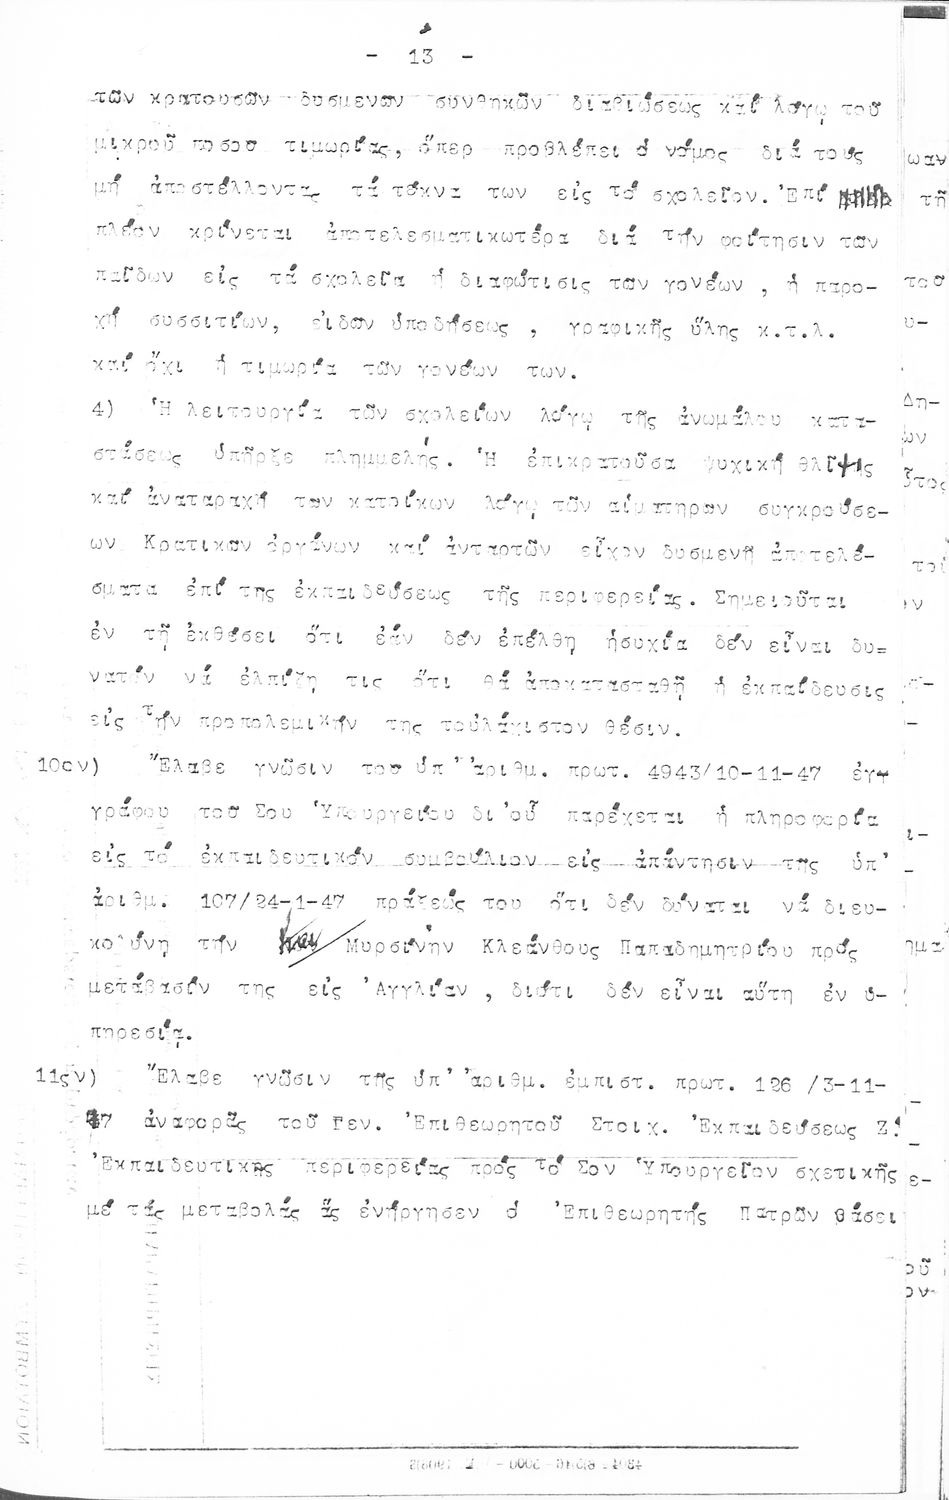 - 13 -
τῶν κρατουσῶν δυσμενῶν συνθηκῶν διαβιώσεως καί λόγῳ τοῦ
μικροῦ ποσοῦ τιμωρίας, ὅπερ προβλέπει ὁ νόμος διά τούς
μή ἀποστέλλοντας τά τέκνα των εἰς τό σχολεῖον. Ἐπί
πλέον κρίνεται ἀποτελεσματικωτέρα διά τήν φοίτησιν τῶν
παίδων εἰς τά σχολεῖα ἡ διαφώτισις τῶν γονέων , ἡ παρο-
χή συσσιτίων, εἰδῶν ὑποδήσεως , γραφικῆς ὕλης κ.τ.λ.
καί ὄχι ἡ τιμωρία τῶν γονέων των.
4) Ἡ λειτουργία τῶν σχολείων λόγῳ τῆς ἀνωμάλου κατα-
στάσεως ὑπῆρξε πλημμελής. Ἡ ἐπικρατοῦσα ψυχική θλῖψις
καί ἀναταραχή τῶν κατοίκων λόγῳ τῶν αἱματηρῶν συγκρούσε-
ων Κρατικῶν ὀργάνων καί ἀνταρτῶν εἶχον δυσμενῆ ἀποτελέ-
σματα ἐπί της ἐκπαιδεύσεως τῆς περιφερείας. Σημειοῦται
ἐν τῇ ἐκθέσει ὅτι ἐάν δέν ἐπέλθη ἡσυχία δέν εἶναι δυ=
νατόν νά ἐλπίζη τις ὅτι θά ἀποκατασταθῇ ἡ ἐκπαίδευσις
εἰς τήν προπολεμικήν της τοὐλάχιστον θέσιν.
10ον) Ἔλαβε γνῶσιν τοῦ ὑπ' ἀριθμ. πρωτ. 4943/10-11-47 ἐγγ
γράφου τοῦ Σου Ὑπουργείου δι'οὗ παρέχεται ἡ πληροφορία
εἰς τό ἐκπαιδευτικόν συμβούλιον εἰς ἀπάντησιν τῆς ὑπ'
ἀριθμ. 107/24-1-47 πράξεώς του ὅτι δέν δύναται νά διευ-
κολύνη τήν Καν Μυρσίνην Κλεάνθους Παπαδημητρίου πρός
μετάβασίν της εἰς Ἀγγλίαν , διότι δέν εἶναι αὕτη ἐν ὑ-
πηρεσίᾳ.
11ςν) Ἔλαβε γνῶσιν τῆς ὑπ' ἀριθμ. ἐμπιστ. πρωτ. 126 /3-11-
47 ἀναφορᾶς τοῦ Γεν. Ἐπιθεωρητοῦ Στοιχ. Ἐκπαιδεύσεως Ζ.
Ἐκπαιδευτικῆς περιφερείας πρός τό Σον Ὑπουργεῖον σχετικῆς
μέ τάς μεταβολάς ἅς ἐνήργησεν ὁ Ἐπιθεωρητής Πατρῶν βάσει
ωαν
τῇ
τοῦ
υ-
Δη-
ων
τος
τοῦ
ν
-
ι-
ημα
ε-
οῦ
ον-